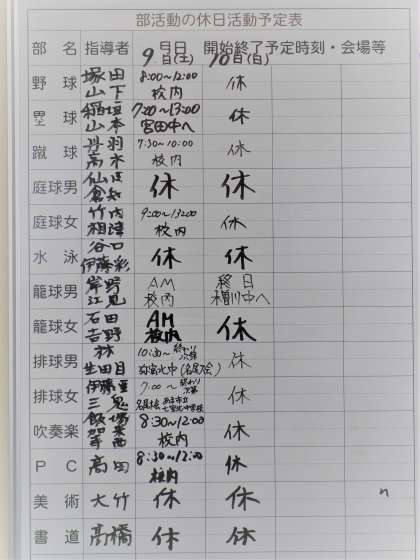 部活動の休日活動予定表
部 名 指導者 月日 開始終了予定時刻・会場等
9日(土) 10日(日)
野 球 塚田 山下 8:00~12:00 校内 休
塁 球 稲垣 山本 7:30~13:00 宮田中へ 休
蹴 球 丹羽 高木 7:30~10:00 校内 休
庭球男 休 休
庭球女 竹内 9:00~13:00 校内 休
水 泳 谷口 伊藤彩 休 休
籠球男 岸野 江見 AM 校内 移日
籠球女 石田 吉野 AM 校内 休
排球男 林 生田目 10:30~終わり次第 弥富北中(名尾大会) 休
排球女 伊藤里 三鬼 7:00~終わり次第 休
吹奏楽 飯場 8:30~12:00 校内 休
P C 高田 8:30~12:00 校内 休
美 術 大竹 休 休
書 道 高橋 休 休